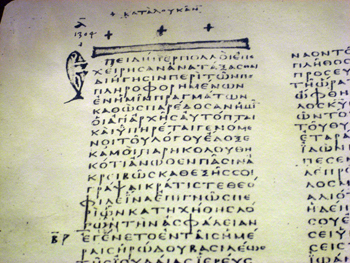 ΚΑΤΑΛΟΥΚΑΝ
ΠΕΙΔΗΠΕΡΠΟΛΛΟΙΕΠΕ
ΧΕΙΡΗΣΑΝΑΝΑΤΑΞΑΣΘΑΙ
ΔΙΗΓΗΣΙΝΠΕΡΙΤΩΝΠΕ
ΠΛΗΡΟΦΟΡΗΜΕΝΩΝ
ΕΝΗΜΙΝΠΡΑΓΜΑΤΩΝ
ΚΑΘΩΣΠΑΡΕΔΟΣΑΝΗΜΙ
ΟΙΑΠΑΡΧΗΣΑΥΤΟΠΤΑΙ
ΚΑΙΥΠΗΡΕΤΑΙΓΕΝΟΜΕ
ΝΟΙΤΟΥΛΟΓΟΥΕΔΟΞΕ
ΚΑΜΟΙΠΑΡΗΚΟΛΟΥΘΗ
ΚΟΤΙΑΝΩΘΕΝΠΑΣΙΝΑ
ΚΡΙΒΩΣΚΑΘΕΞΗΣΣΟΙ
ΓΡΑΨΑΙΚΡΑΤΙΣΤΕΘΕΟ
ΦΙΛΕΙΝΑΕΠΙΓΝΩΣΠΕ
ΡΙΩΝΚΑΤΗΧΗΘΗΣΛΟ
ΓΩΝΤΗΝΑΣΦΑΛΕΙΑΝ
ΕΓΕΝΕΤΟΕΝΤΑΙΣΗΜΕ
ΡΑΙΣΗΡΩΔΟΥΒΑΣΙΛΕΩΣ
ΤΗΣΙΟΥΔΑΙΑΣΙΕΡΕΥΣ
ΝΑΟΝΤΟ
ΠΛΗΘΟΣ
ΠΡΟΣΕΥ
ΤΗΩΡΑΤ
ΩΦΘΗΔ
ΛΟΣΚΥ
ΩΝΤΟΥ
ΤΟΥΘΥ
ΕΤΑΡΑ